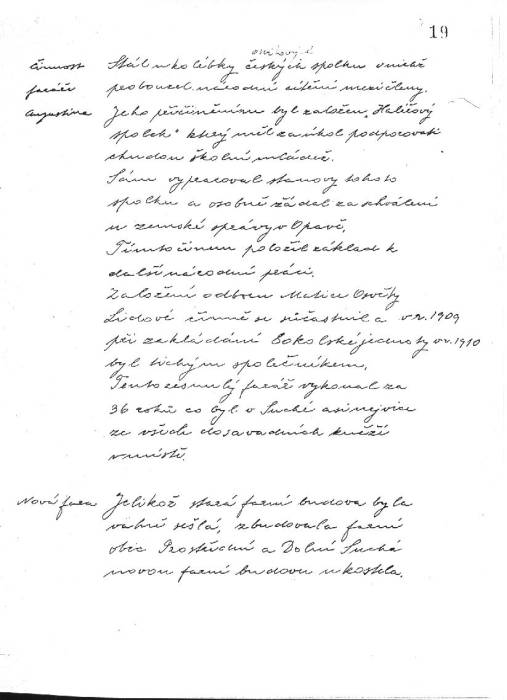 19
činnost
faráře
Augustina
Stál u kolébky českých spolku v nichž
probouzel národní cítění mezi členy.
Jeho přičiněním byl založen „Haléřový
spolek" který měl za úkol podporovati
chudou školní mládež.
Sám vypracoval stanovy tohoto
spolku a osobně žádal za schválení
u zemské správy v Opavě.
Tímto činem položil základ k
další národní práci.
Založení odboru Matice Osvěty
Lidové činně se súčastnil a v r. 1909
při zakládání Sokolské jednoty v r. 1910
byl tichým společníkem.
Tento zesnulý farář vykonal za
36 roků co byl v Suché asi nejvíce
ze všech dosavadních kněží
v místě.
Nová fara
Jelikož stará farní budova byla
valně sešlá, zbudovala farní
obec Prostřední a Dolní Suchá
novou farní budovu u kostela.